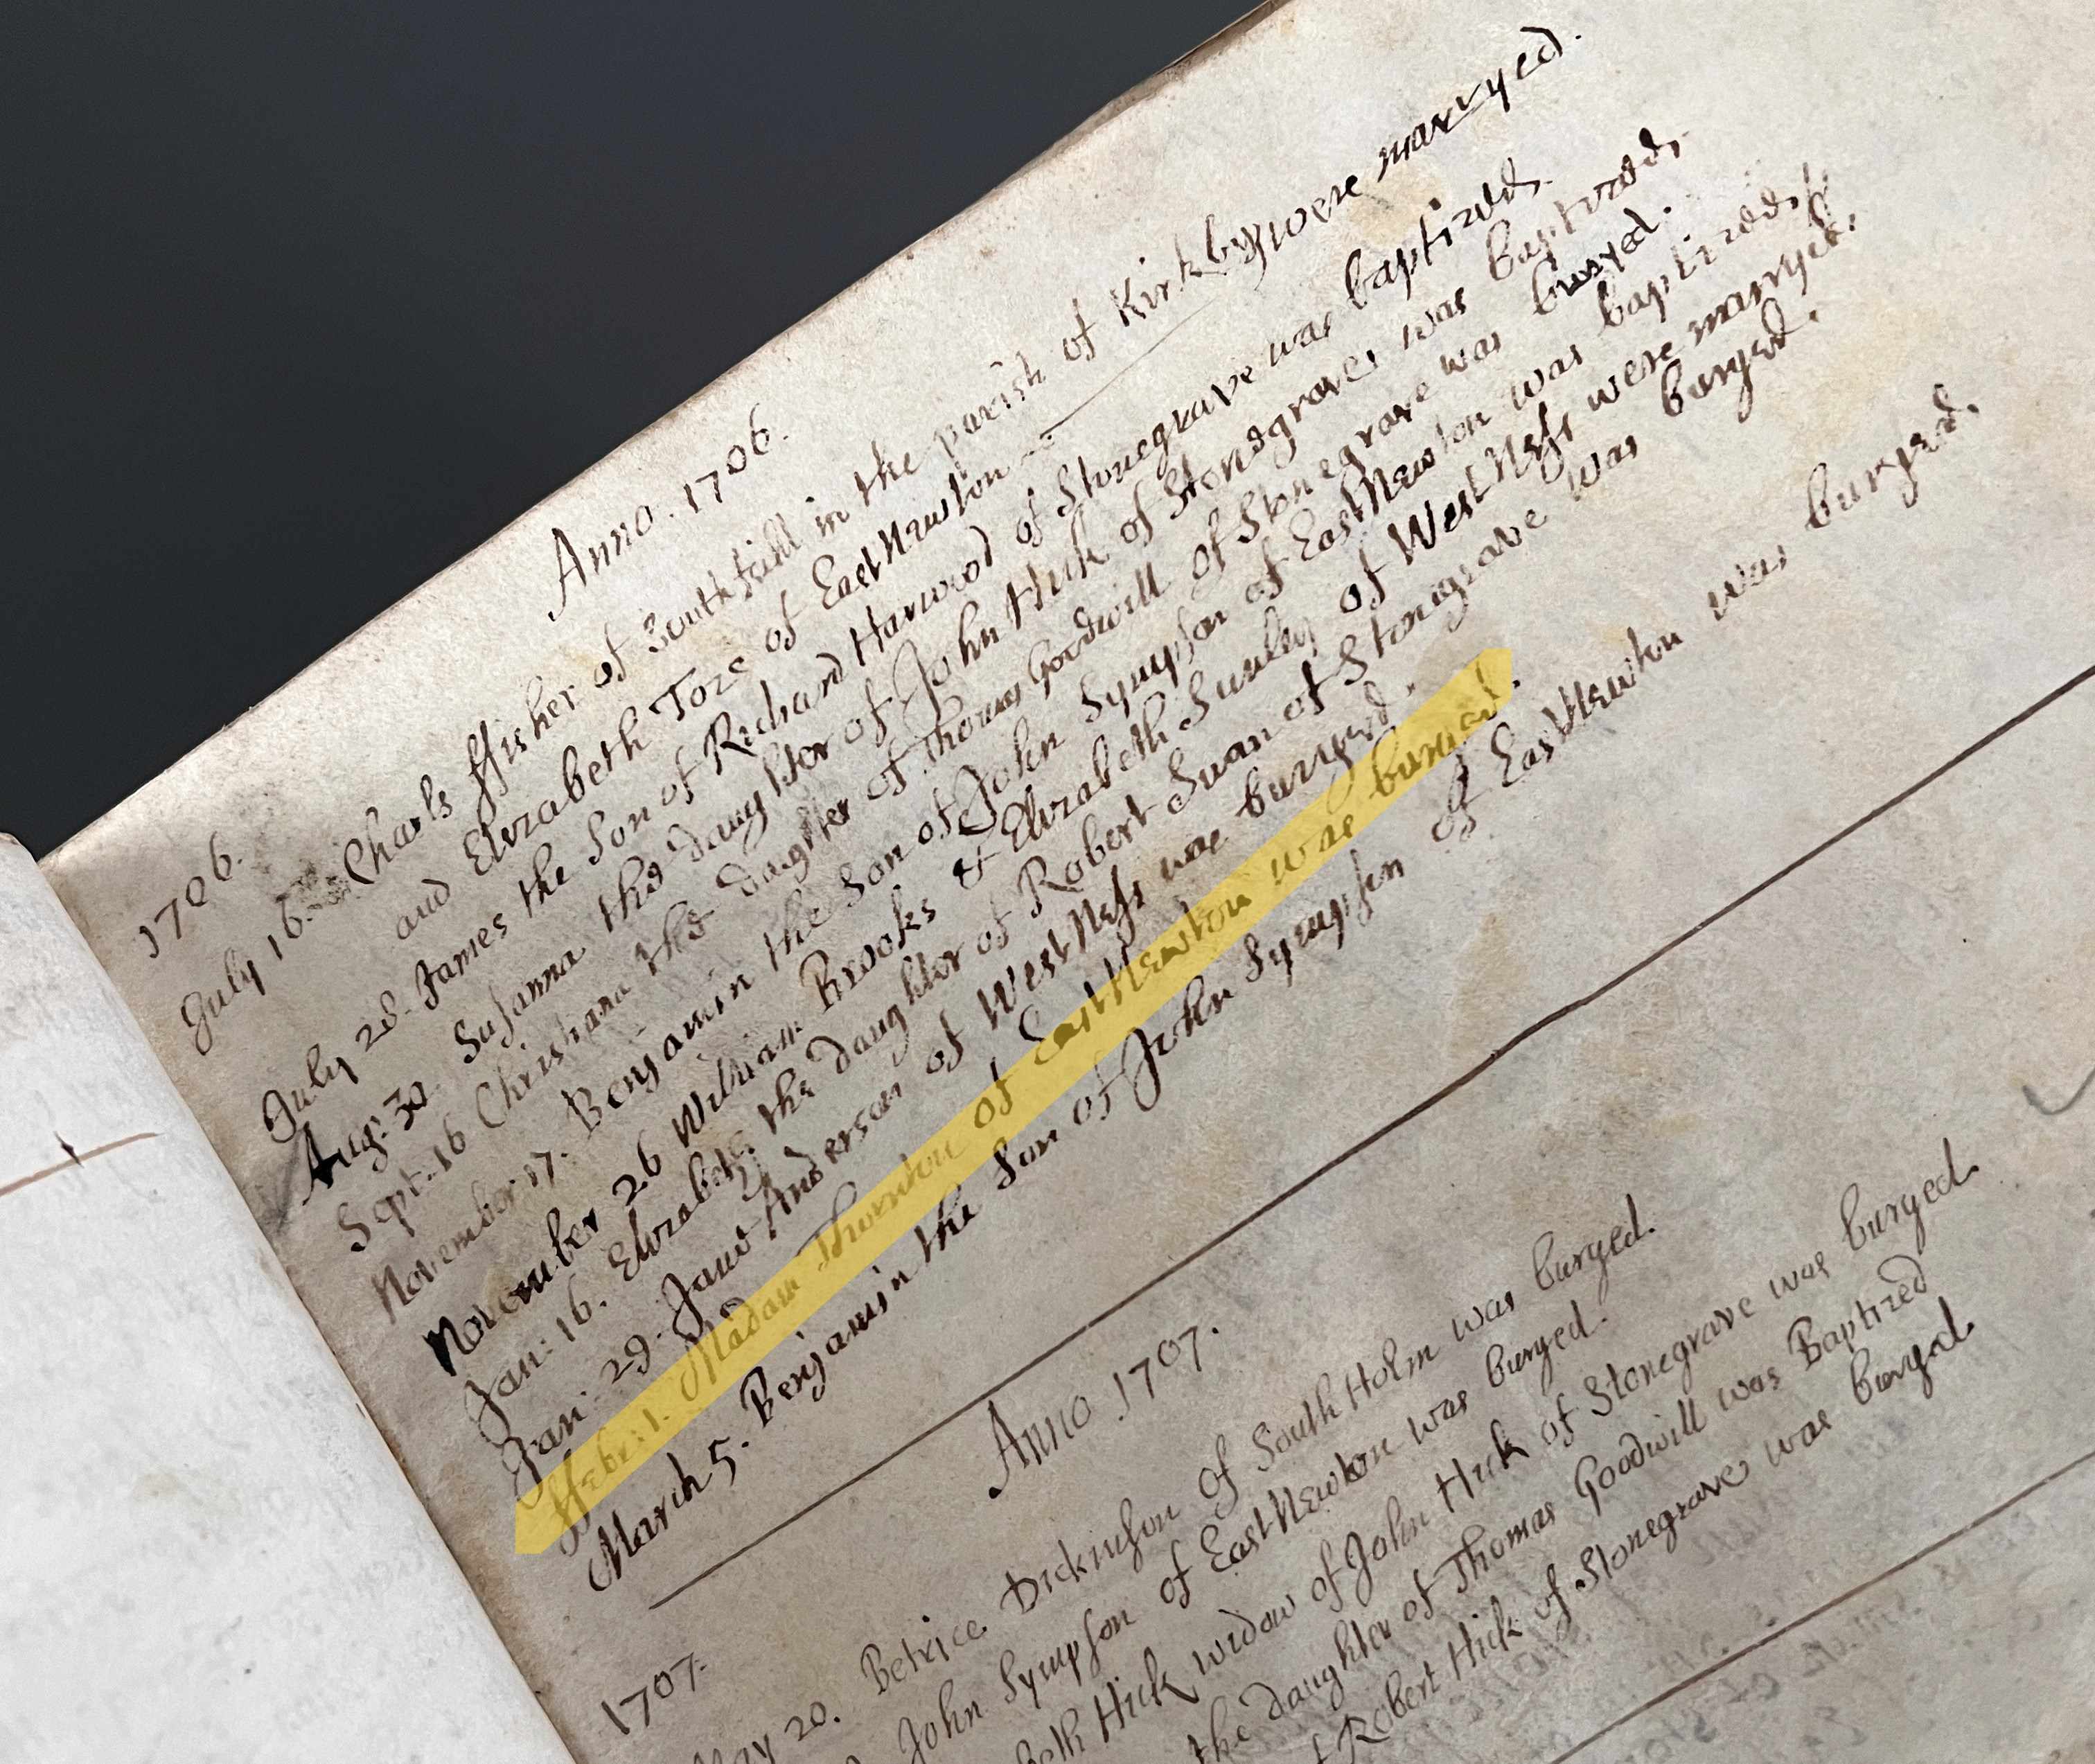 Anno. 1706.
1706.
July 16. Charls ffisher of in the parish of Kirkby were marryed.
and Elizabeth Tose of East Newton
July 28. James the Son of Richard Harwood of Stonegrave was baptized.
Aug: 30. Susanna the daughter of John Hick of Stonegrave was baptized.
Sept. 16 Christiana the dagter of Thomas Goodwill of Stonegrave was buryed.
November 17. Benjamin the Son of John Sympson of East Newton was baptized.
November 26 William Brooks & Elizabeth of West Ness were marryed.
Jan: 16. Elizabeth the daughter of Robert Swan of Stonegrave was buryed.
Jan: 29. Jane Anderson of West Ness was buryed.
ffebr: 1. Madam Thornton of East Newton was buryed.
March 5. Benjamin the Son of John Sympson of East Newton was buryed.
Anno 1707.
1707.
May 20. Betrice Dickinson of South Holm was buryed.
John Sympson of East Newton was buryed.
Hick widow of John Hick of Stonegrave was buryed.
the daughter of Thomas Goodwill was Baptized
Robert Hick of Stonegrave was buryed.